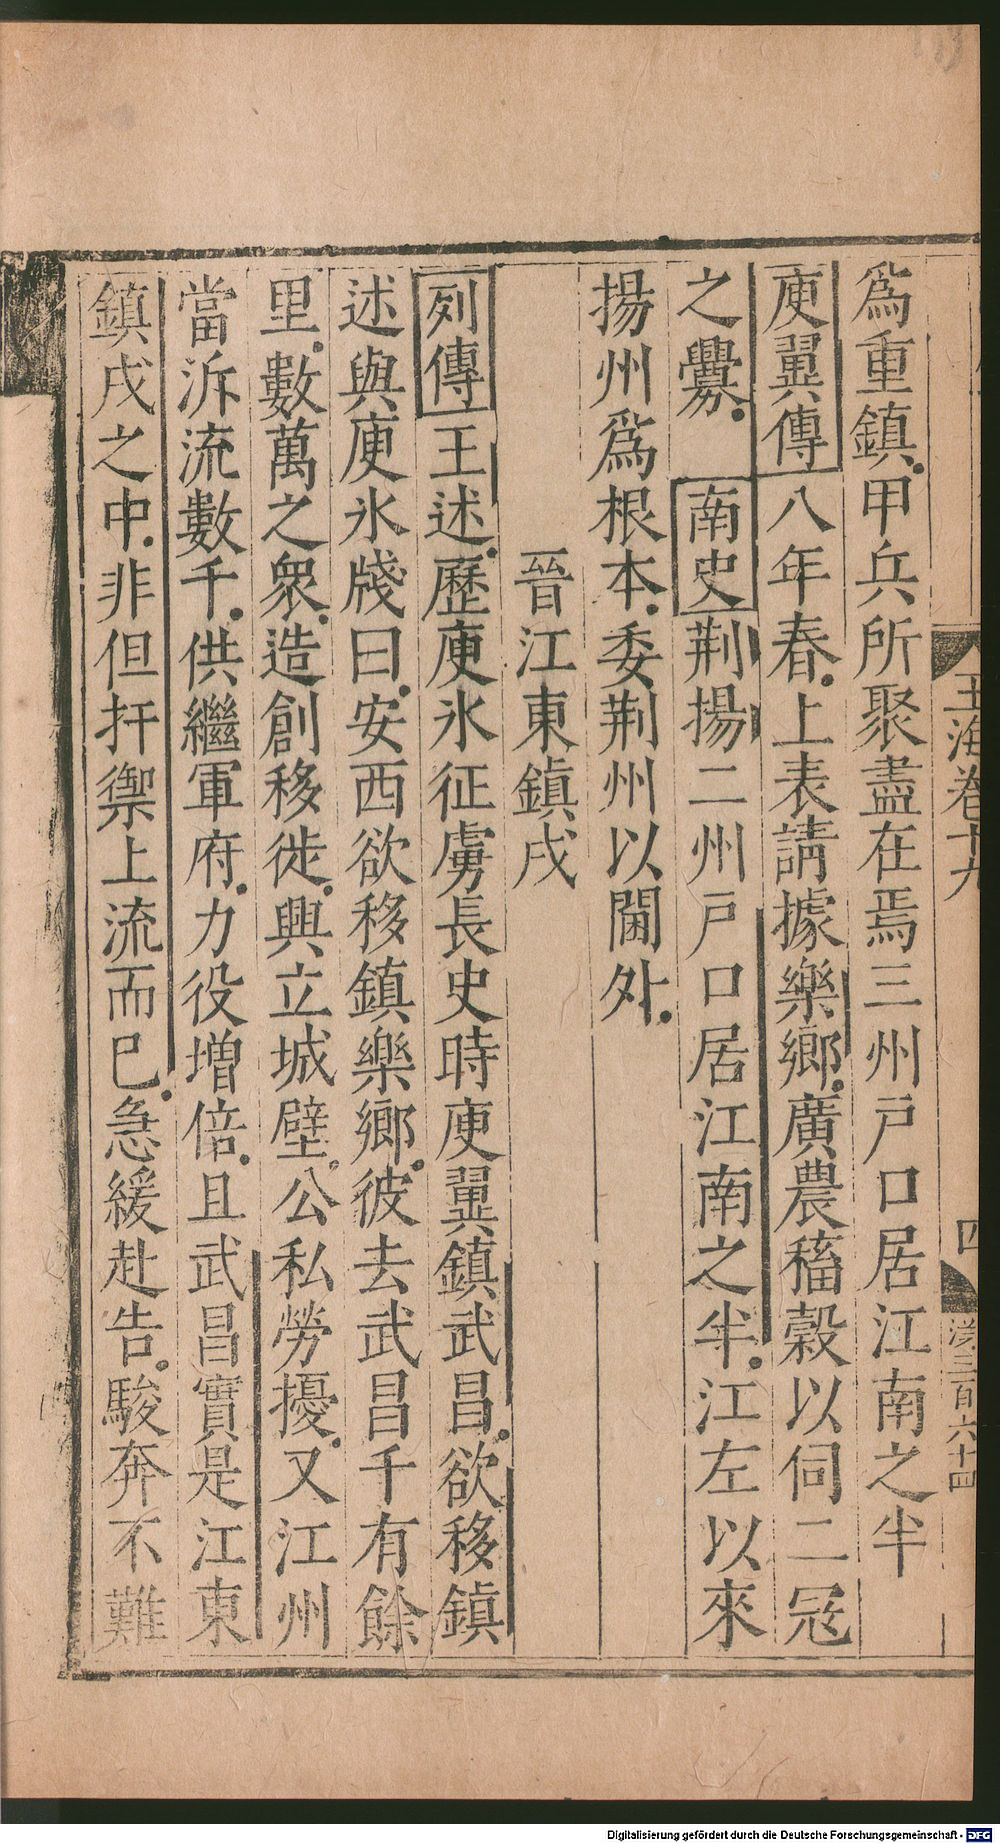 玉海卷十九
四
為重鎮甲兵所聚盡在焉三州戶口居江南之半
庾翼傳八年春上表請據樂鄉廣農稸穀以伺二冦
之釁 南史荆揚二州戶口居江南之半江左以來
揚州為根本委荆州以閫外
晉江東鎮戍
列傳王述歷庾氷征虜長史時庾翼鎮武昌欲移鎮
述與庾氷牋曰安西欲移鎮樂鄉彼去武昌千有餘
里數萬之衆造創移徙興立城壁公私勞擾又江州
當泝流數千供繼軍府力役增倍且武昌實是江東
鎮戍之中非但扞禦上流而已急緩赴告駿奔不難
Digitalisierung gefördert durch die Deutsche Forschungsgemeinschaft - DFG